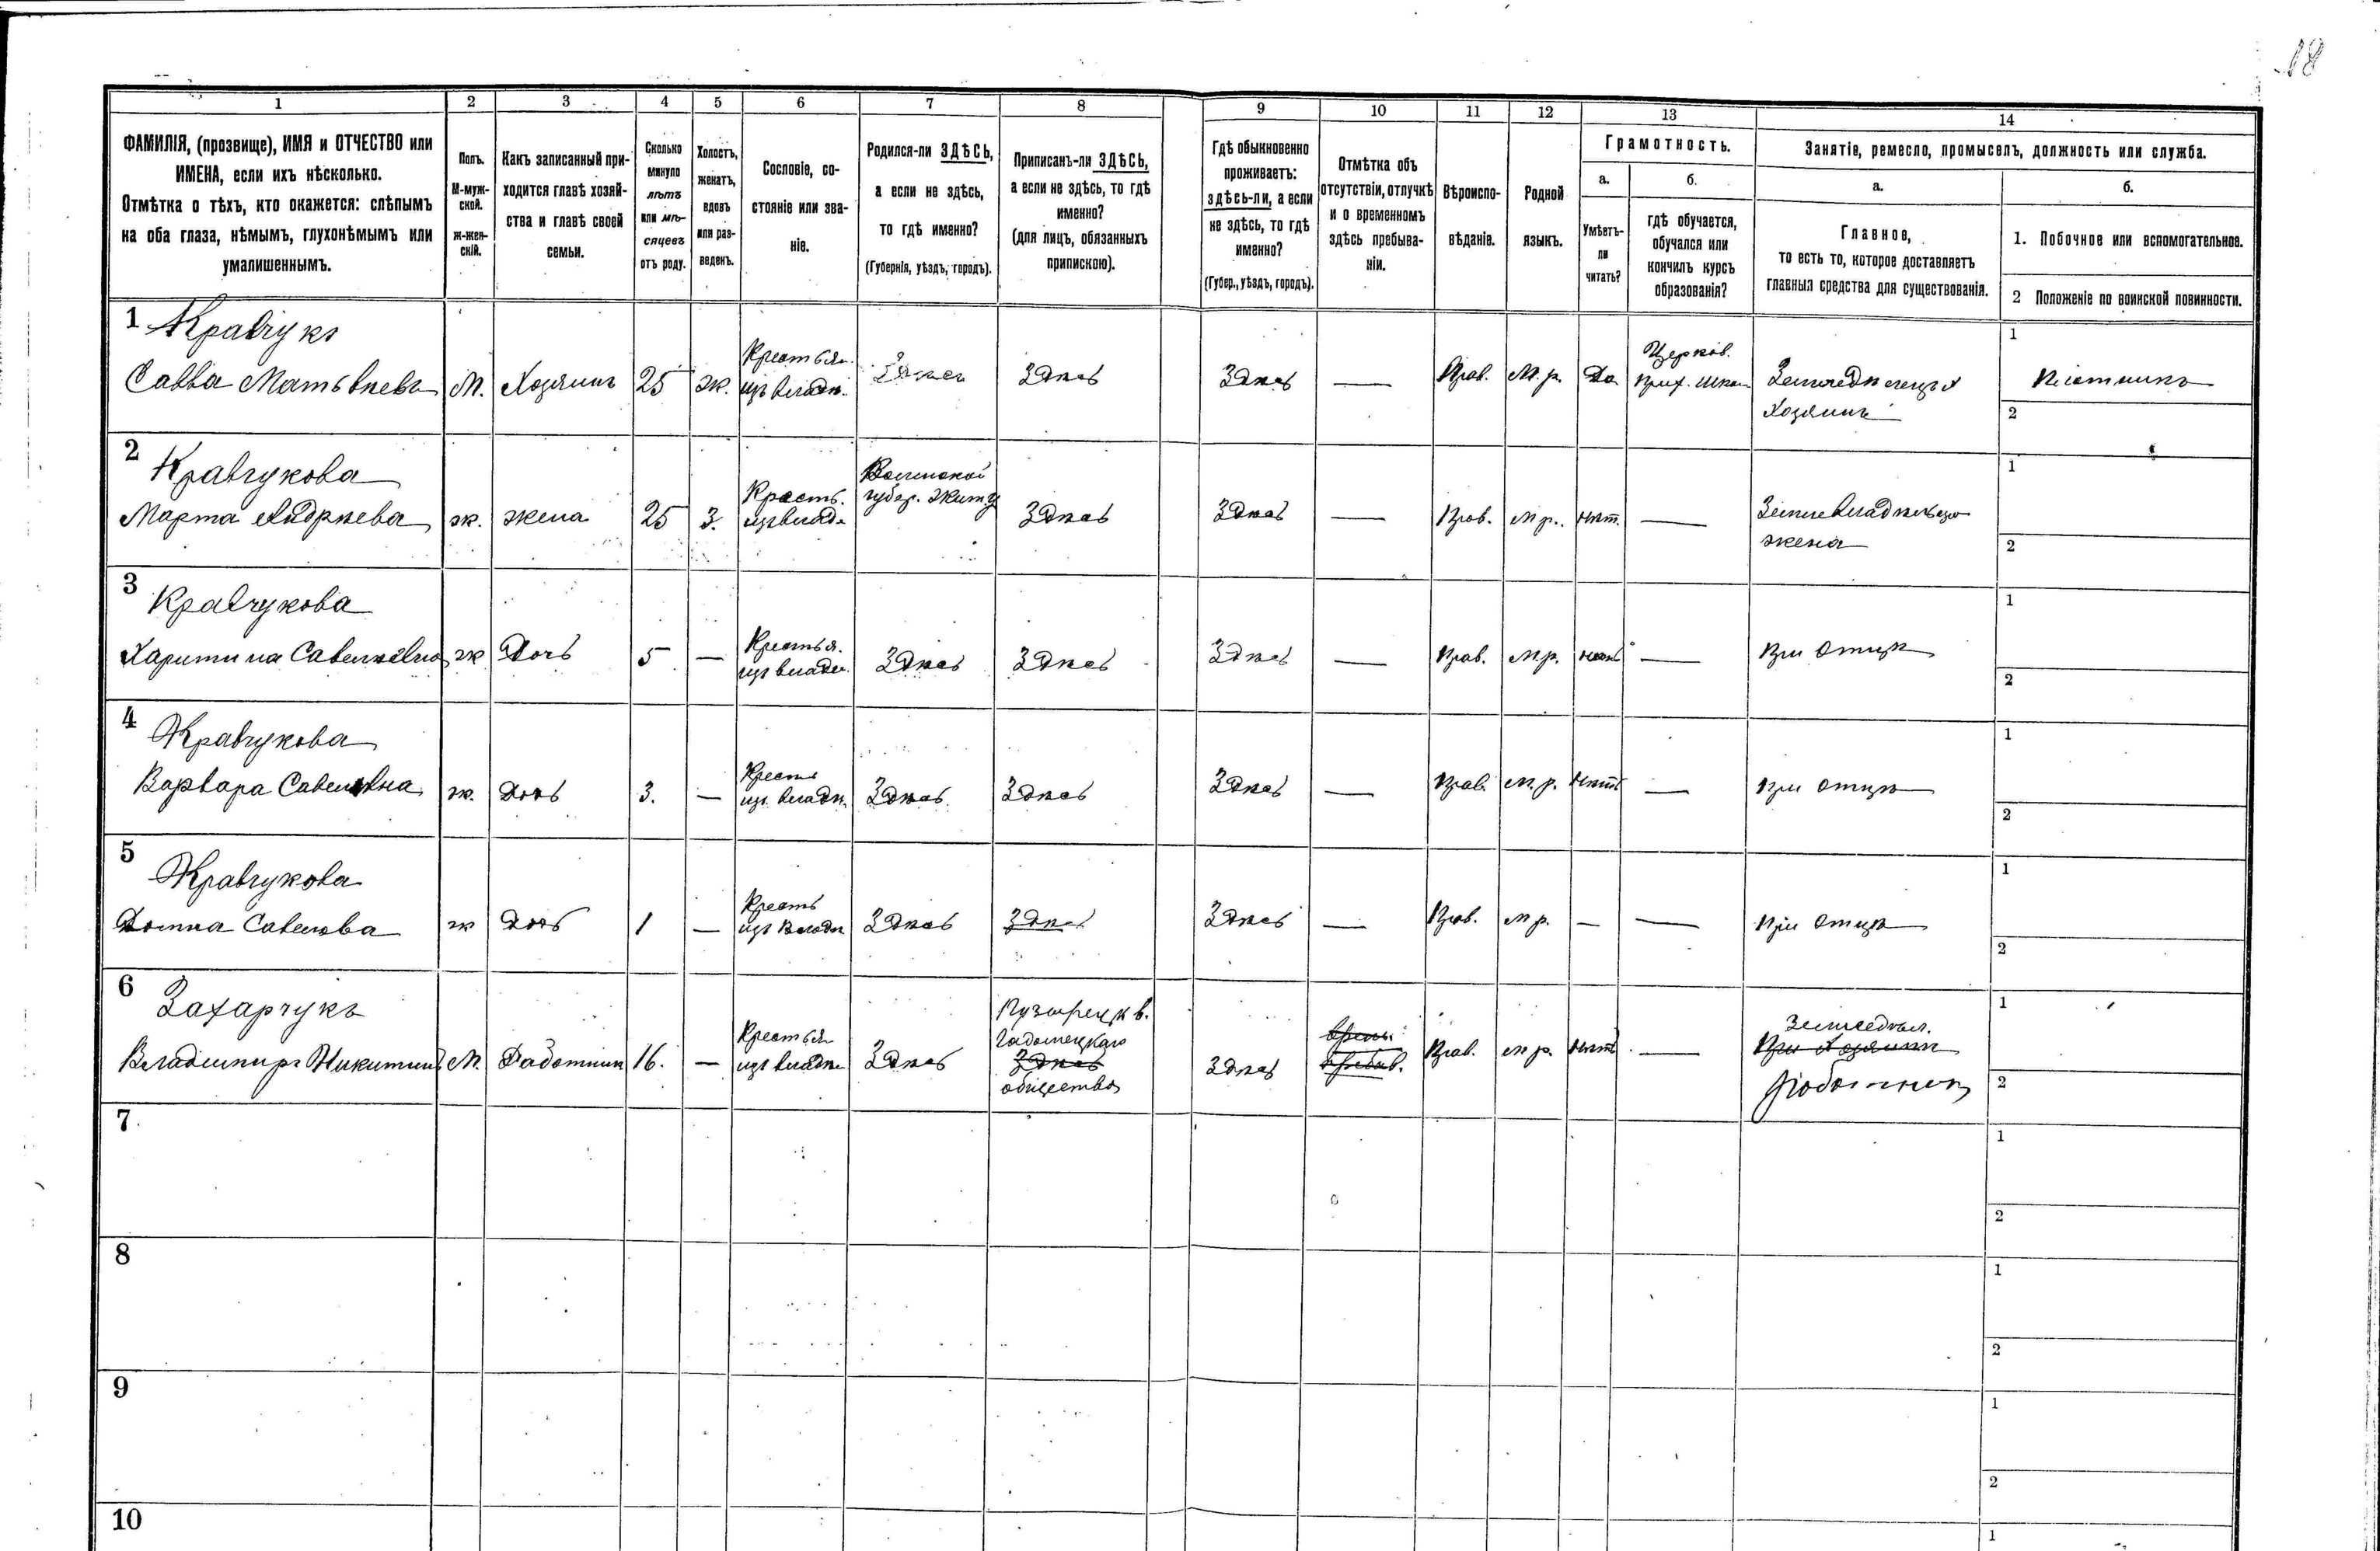 18
1 2 3 4 5 6 7 8 9 10 11 12 13 14
ФАМИЛІЯ, (прозвище), ИМЯ и ОТЧЕСТВО или
ИМЕНА, если ихъ нѣсколько.
Отмѣтка о тѣхъ, кто окажется: слѣпымъ
на оба глаза, нѣмымъ, глухонѣмымъ или
умалишеннымъ.
Полъ.
М-муж-
ской.
ж-жен-
скій.
Какъ записанный при-
ходится главѣ хозяй-
ства и главѣ своей
семьи.
Сколько
минуло
лѣтъ
или мѣ-
сяцевъ
отъ роду.
Холостъ,
женатъ,
вдовъ
или раз-
веденъ.
Сословіе, со-
стояніе или зва-
ніе.
Родился-ли ЗДѢСЬ,
а если не здѣсь,
то гдѣ именно?
(Губернія, уѣздъ, городъ).
Приписанъ-ли ЗДѢСЬ,
а если не здѣсь, то гдѣ
именно?
(для лицъ, обязанныхъ
припискою).
Гдѣ обыкновенно
проживаетъ:
здѣсь-ли, а если
не здѣсь, то гдѣ
именно?
(Губер., уѣздъ, городъ).
Отмѣтка объ
отсутствіи, отлучкѣ
и о временномъ
здѣсь пребыва-
ніи.
Вѣроиспо-
вѣданіе.
Родной
языкъ.
Грамотность.
а.
Умѣетъ-
ли
читать?
б.
гдѣ обучается,
обучался или
кончилъ курсъ
образованія?
Занятіе, ремесло, промыселъ, должность или служба.
а.
Главное,
то есть то, которое доставляетъ
главныя средства для существованія.
б.
1. Побочное или вспомогательное.
2 Положеніе по воинской повинности.
1 Кравчукъ
Савва Матвѣевъ
М. Хозяинъ 25 ж.
Крестьян.
изъ владѣ.
Здѣсь Здѣсь Здѣсь — Прав. М.р. Да
Церков.
прих. шко
Хозяинъ
1 Плотникъ
2
2 Кравчукова
Марта Андрѣева
ж. жена 25 З.
Крестъ.
изъ владѣ
Волынской
губер. Жит. у
Здѣсь Здѣсь — Прав. М р. нѣт. —
Землевладѣльца
жена
1
2
3 Кравчукова
Харитина Савельевна
ж Дочь 5 —
Крестья.
изъ владѣ.
Здѣсь Здѣсь Здѣсь — Прав. М.р. нѣтъ —
При отцѣ
1
2
4 Кравчукова
Варвара Савельевна
ж. Дочь 3. —
Кресть
изъ владѣ.
Здѣсь Здѣсь Здѣсь — Прав. М.р. нѣтъ —
При отцѣ
1
2
5 Кравчукова
Домна Савелова
ж Дочь 1 —
Кресть
изъ владѣ
Здѣсь Здѣсь Здѣсь — Прав. М р. — —
При отцѣ
1
2
6 Захарчукъ
Владимиръ Никитинъ
М. Работник 16. —
Крестьян
изъ владѣ
Здѣсь
Здѣсь
общества
Здѣсь
Прав. М р. нѣтъ —
Земледѣл.
При хозяинѣ
работник
1
2
7
1
2
8
1
2
9
1
2
10
1